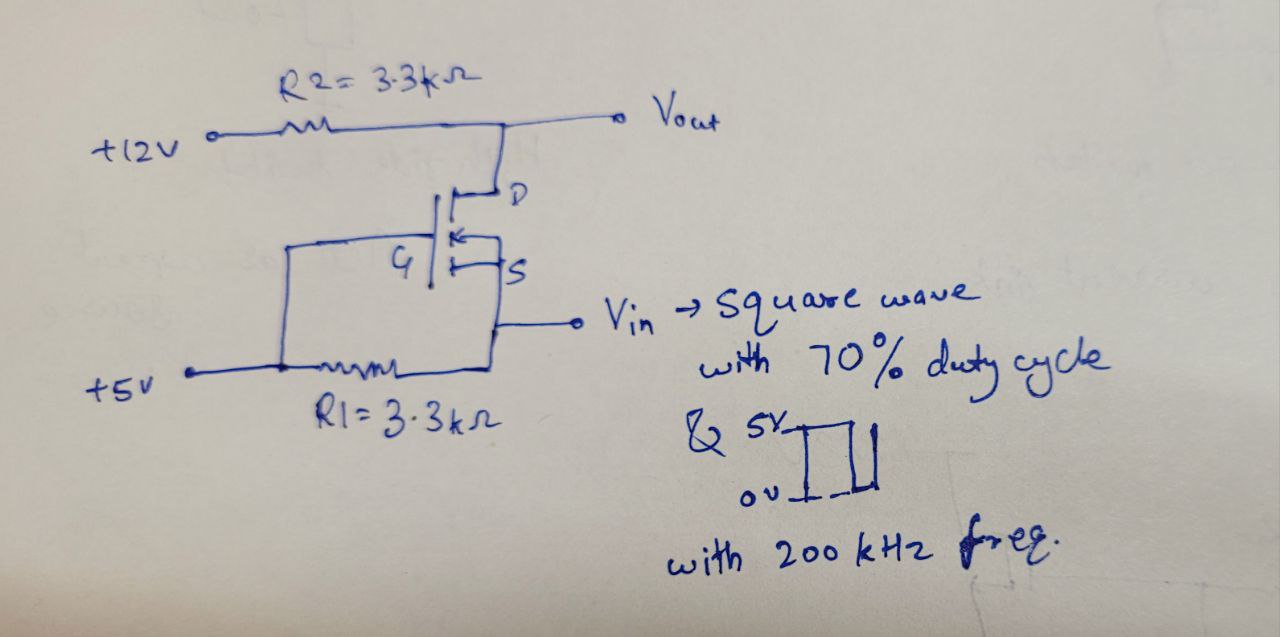 R2= 3.3kΩ
+12V
Vout
D
G
S
Vin → square wave
with 70% duty cycle
+5V
R1= 3.3kΩ
& 5V
0V
with 200 kHz freq.